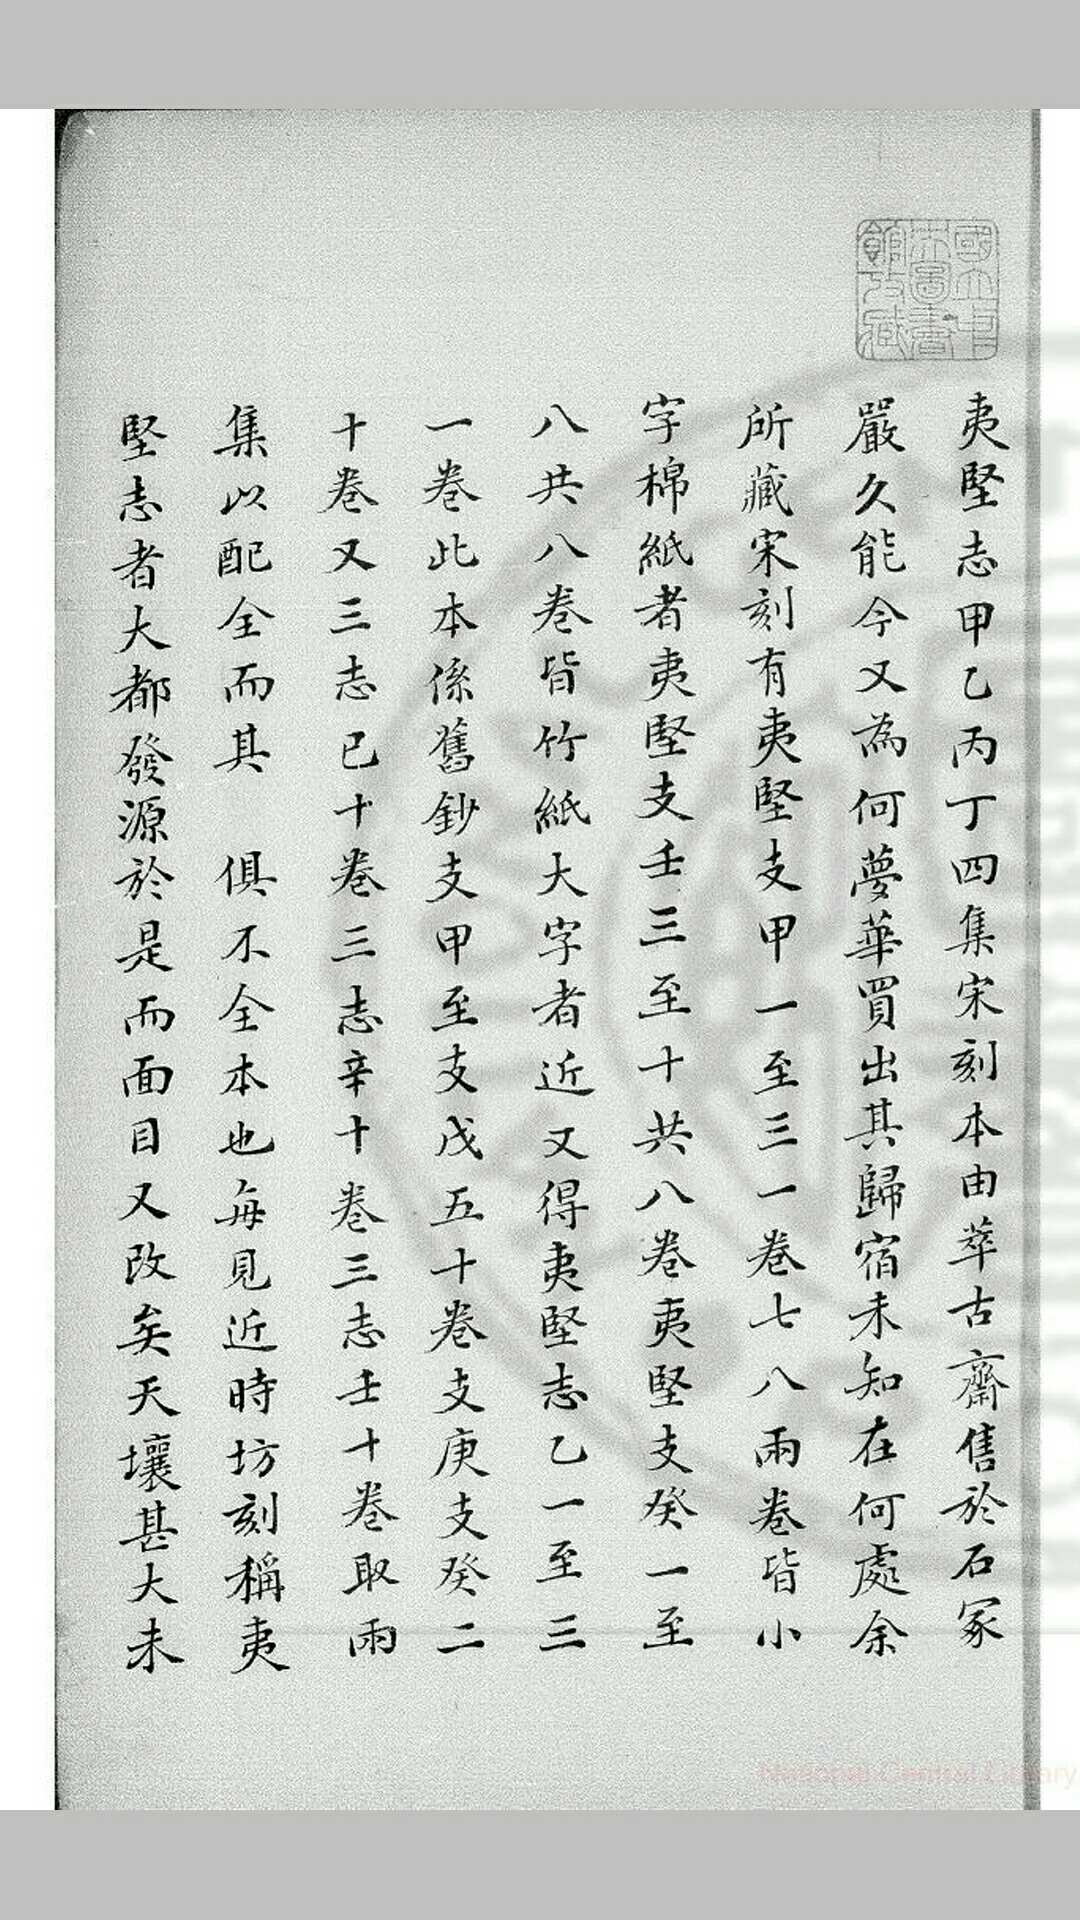 國立中
央圖書
館收藏
夷堅志甲乙丙丁四集宋刻本由萃古齋售於石冢
嚴久能今又為何夢華買出其歸宿未知在何處余
所藏宋刻有夷堅支甲一至三一卷七八兩卷皆小
字棉紙者夷堅支壬三至十共八卷夷堅支癸一至
八共八卷皆竹紙大字者近又得夷堅志乙一至三
一卷此本係舊鈔支甲至支戊五十卷支庚支癸二
十卷又三志已十卷三志辛十卷三志壬十卷取兩
集以配全而其 俱不全本也每見近時坊刻稱夷
堅志者大都發源於是而面目又改矣天壤甚大未
National Central Library